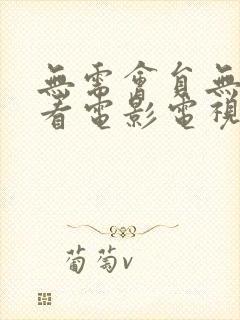 無需會員無
看電影電視
葡萄v